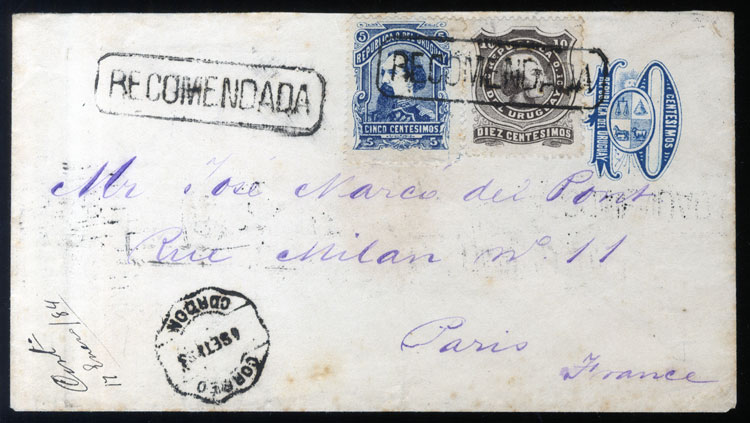 RECOMENDADA
5 5
REPUBLICA O. DEL URUGUAY
CINCO CENTESIMOS
5 5
10 10
REPUBLICA O.
DEL URUGUAY
DIEZ CENTESIMOS
RECOMENDADA
5 CENTESIMOS 5
REPUBLICA DEL URUGUAY
Mr José Marcó del Pont
Rue Milan Nº 11
Paris
France
CORREO
6 SET
CORDON
17 Enero/84